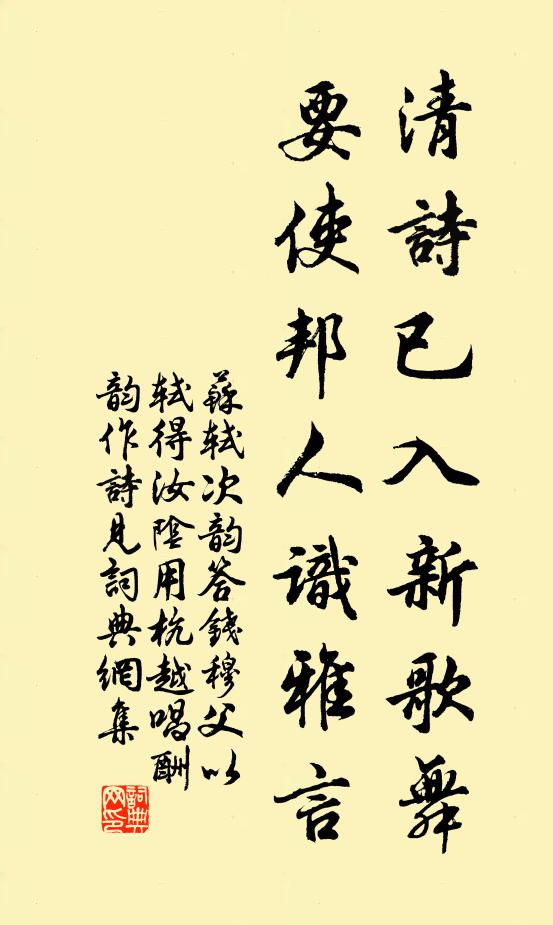 清詩已入新歌舞
要使邦人識雅言
蘇軾次韵答錢穆父以
軾得汝陰用杭越唱酬
韵作詩見詞典網集
詞典網印